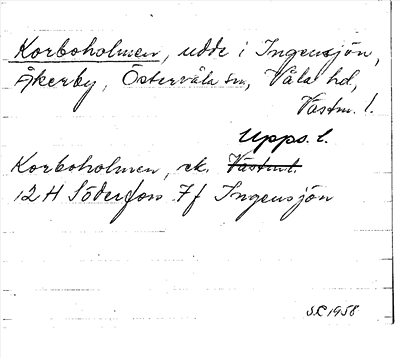 Korboholmen, udde i Ingensjön,
Åkerby, Östervåla sn, Våla hd,
Västm. l.
Upps. l.
Korboholmen, ek. Västml.
12 H Söderfors 7 f Ingensjön
SL 1958